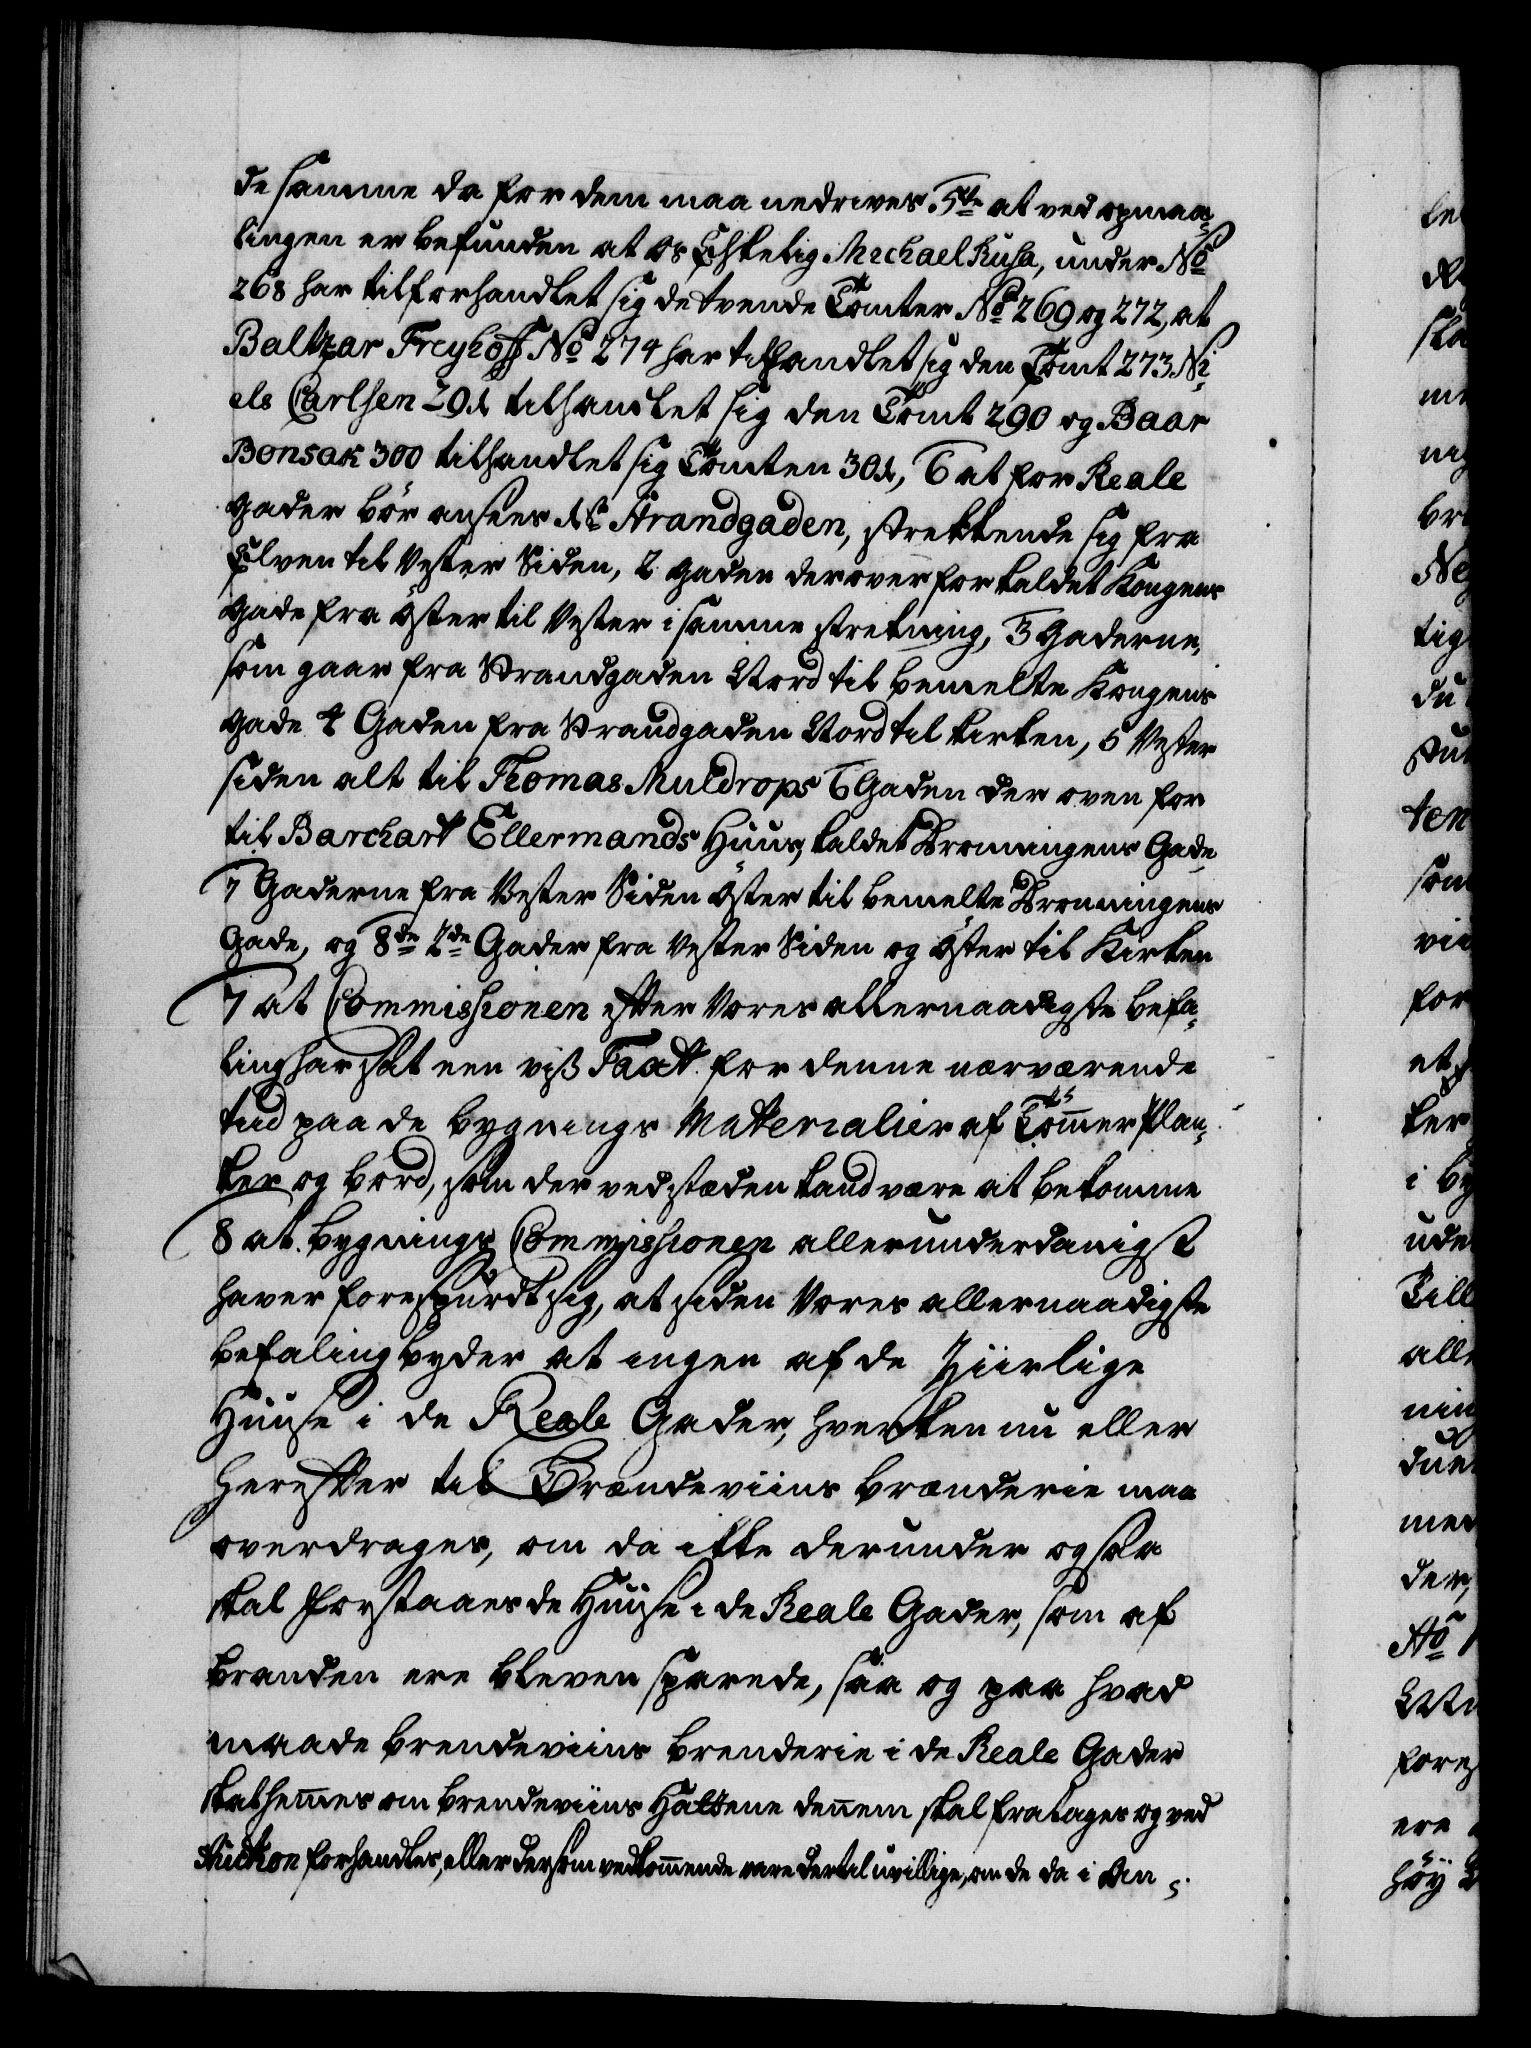 de samme da for dem maa nedrives. 5te at ved opmaa-
lingen er befunden at os Elskelig Michael Kuhn, under No
268 har tilforhandlet sig de tvende Tomter No 269 og 272, at
Baltzar Freyhoff No 274 har tilhandlet sig den Tomt 273. Ni-
els Carlsen 291 tilhandlet sig den Tomt 290 og Baar
Bonsak 300 tilhandlet sig Tomten 301, 6 at for Reale
gader bör ansees 1te Strandgaden, strekkende sig fra
Elven til Vester Siden, 2 gaden derover for kaldet Kongens
gade fra öster til Vester i samme strekning, 3 Gaderne,
som gaar fra Strandgaden Nord til bemelte Kongens
gade 4 Gaden fra Strandgaden Nord til kirken, 5 Vester
siden alt til Thomas Muldrops 6 Gaden der oven for
til Barchart Ellermands Huus, kaldet Dronningens Gade,
7 Gaderne fra Vester Siden öster til bemelte Dronningens
Gade, og 8de 2de Gader fra Vester Siden og öster til Kirken
7 at Commissionen efter Vores allernaadigste befa-
ling har sat een viss Taxt for denne nærværende
tiid paa de bygnings Materialier af Tömmer Plan-
ker og bord, som der ved stæden kand være at bekomme
8 at bygnings Commissionen allerunderdanigst
haver forespurdt sig, at siden Vores allernaadigste
befaling byder at ingen af de Ziirlige
Huuse i de Reale Gader, hverken nu eller
herefter til Brændeviins brænderie maa
overdrages, om da ikke derunder ogsaa
skal forstaaes de Huuse i de Reale Gader, som af
branden ere bleven sparede, saa og paa hvad
maade brendeviins brenderie i de Reale Gader
skal hemmes om brendeviins Hattene dennem skal fratages og ved
Auction forhandles, eller dersom vedkommende vare dertil uvillige, om de da i An-